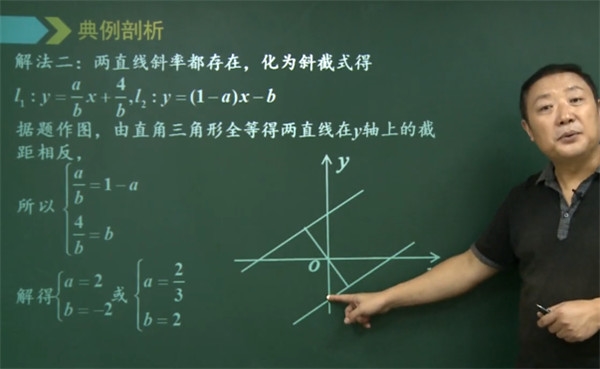 典例剖析
解法二：两直线斜率都存在，化为斜截式得
l₁：y=\frac{a}{b}x+\frac{4}{b},l₂：y=(1-a)x-b
据题作图，由直角三角形全等得两直线在y轴上的截
距相反，
所以 \begin{cases}\frac{a}{b}=1-a\\\frac{4}{b}=b\end{cases}
解得 \begin{cases}a=2\\b=-2\end{cases} 或 \begin{cases}a=\frac{2}{3}\\b=2\end{cases}
y
O